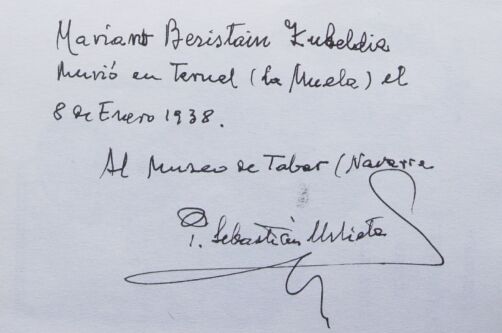 Mariano Beristain Zubeldia
murió en Teruel (La Muela) el
8 de Enero 1938.
Al Museo de Tabar (Navarra
Sebastián Urbieta